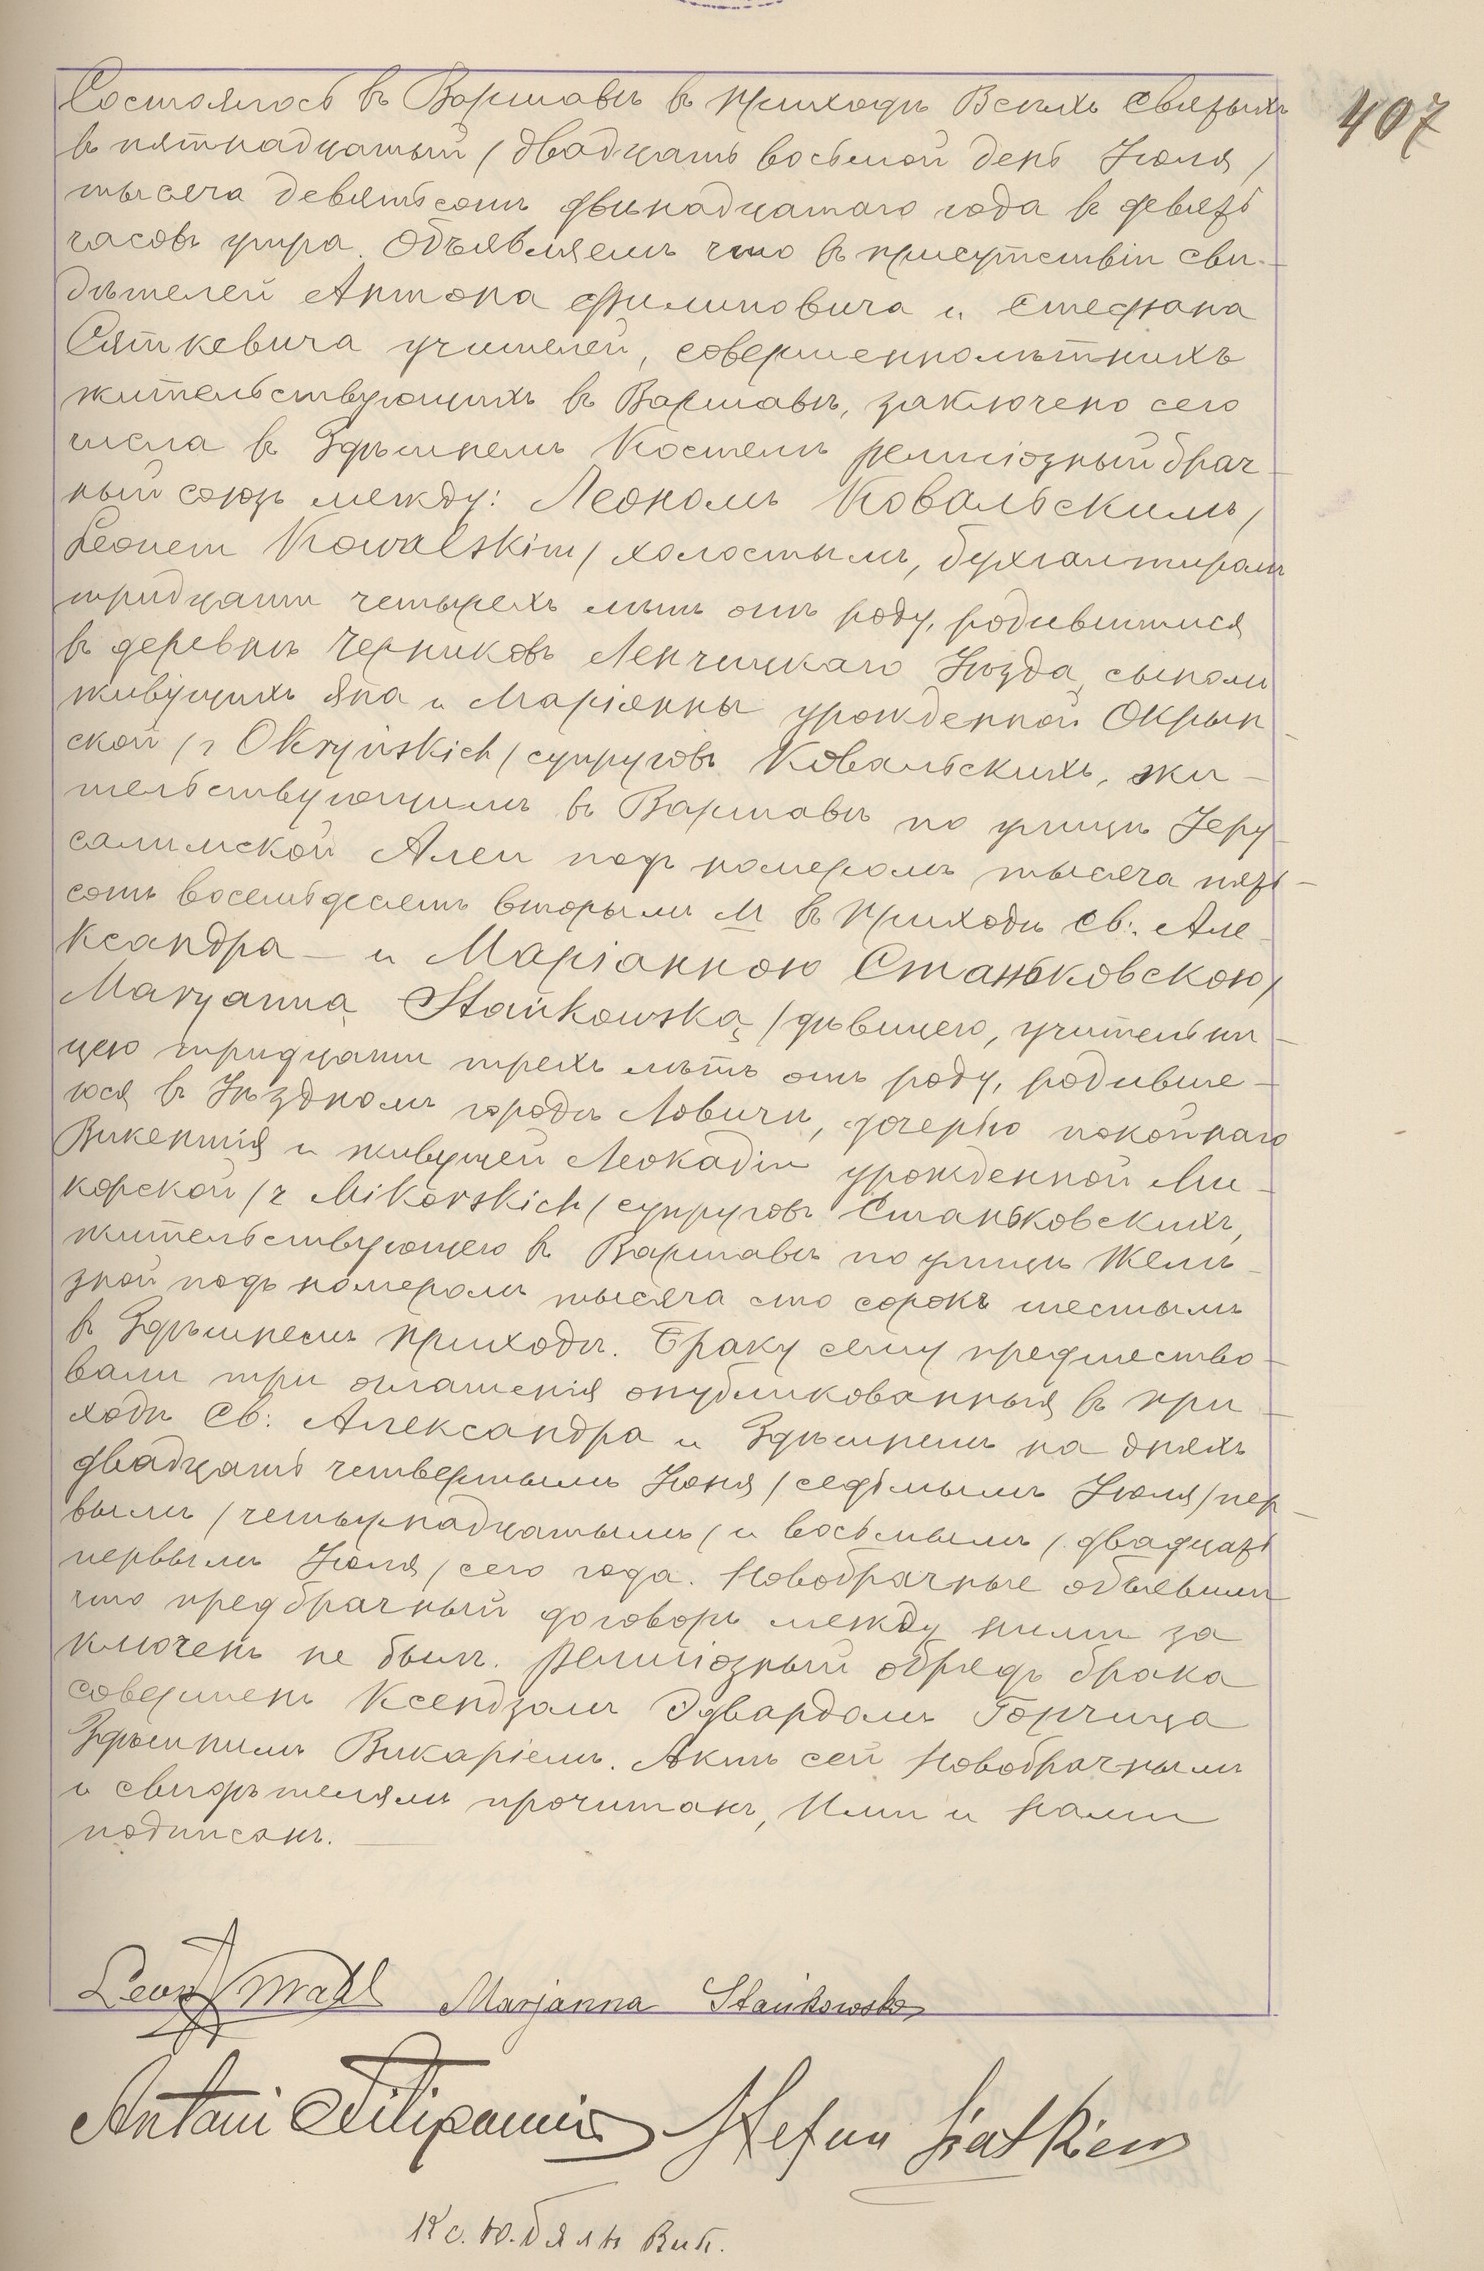 Состоялось въ Варшавѣ въ приходѣ Всѣхъ Святыхъ
407
въ пятнадцатый / двадцать восьмой день Іюля /
тысяча девятьсотъ двѣнадцатаго года въ девять
часовъ утра. Объявляемъ что въ присутствіи сви-
дѣтелей Антона Филиповича и Стефана
Сяткевича учителей, совершеннолѣтнихъ
жительствующихъ въ Варшавѣ, заключено сего
числа въ Здѣшнемъ Костелѣ религіозный брач-
ный союзъ между: Леономъ Ковальскимъ /
Leonem Kowalskim / холостымъ, бухгалтиромъ
тридцати четырехъ лѣтъ отъ роду, родившимся
въ деревнѣ Черниковъ Ленчицкаго Уѣзда, сыномъ
живущихъ Яна и Маріанны урожденной Окрын-
ской / z Okryńskich / супруговъ Ковальскихъ, жи-
тельствующимъ въ Варшавѣ по улицѣ Іеру-
салимской Алеи подъ номеромъ тысяча пять-
сотъ восемьдесятъ вторымъ М въ приходѣ Св: Але-
ксандра — и Маріанною Станьковскою /
Maryanną Stańkowską / дѣвицею, учительни-
цею тридцати трехъ лѣтъ отъ роду, родивше-
юся въ Уѣздномъ городѣ Ловичѣ, дочерью покойнаго
Викентія и живущей Леокадіи урожденной Ми-
корской / z Mikorskich / супруговъ Станьковскихъ,
жительствующею въ Варшавѣ по улицѣ Желѣ-
зной подъ номеромъ тысяча сто сорокъ шестымъ
въ Здѣшнемъ приходѣ. Браку сему предшество-
вали три оглашенія опубликованныя въ при-
ходѣ Св: Александра и Здѣшнемъ на дняхъ
двадцать четвертымъ Іюня / седьмымъ Іюля / пер-
вымъ / четырнадцатымъ / и восьмымъ / двадцать
первымъ Іюля / сего года. Новобрачные объявили
что предбрачный договоръ между ними за
ключенъ не былъ. Религіозный обрядъ брака
совершенъ Ксендзомъ Эдвардомъ Горчица
Здѣшнимъ Викаріемъ. Актъ сей Новобрачнымъ
и свидѣтелямъ прочитанъ, Ими и Нами
подписанъ. —
Leon Kowalski Marjanna Stańkowska
Antoni Filipowicz Stefan Siatkiewicz
Кс. Ю. Бялы Вик.